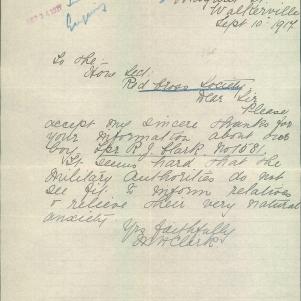 SEP 14 1917
Walkerville
Sept 10 1917
To the
Hon Sec
Red Cross Society
Dear Sir
Please
accept my sincere thanks for
your information about our
boy Spr R J Clark No 1581.
It seems hard that the
Military Authorities do not
see fit to inform relatives
& relieve their very natural
anxiety
Yrs faithfully
Clark